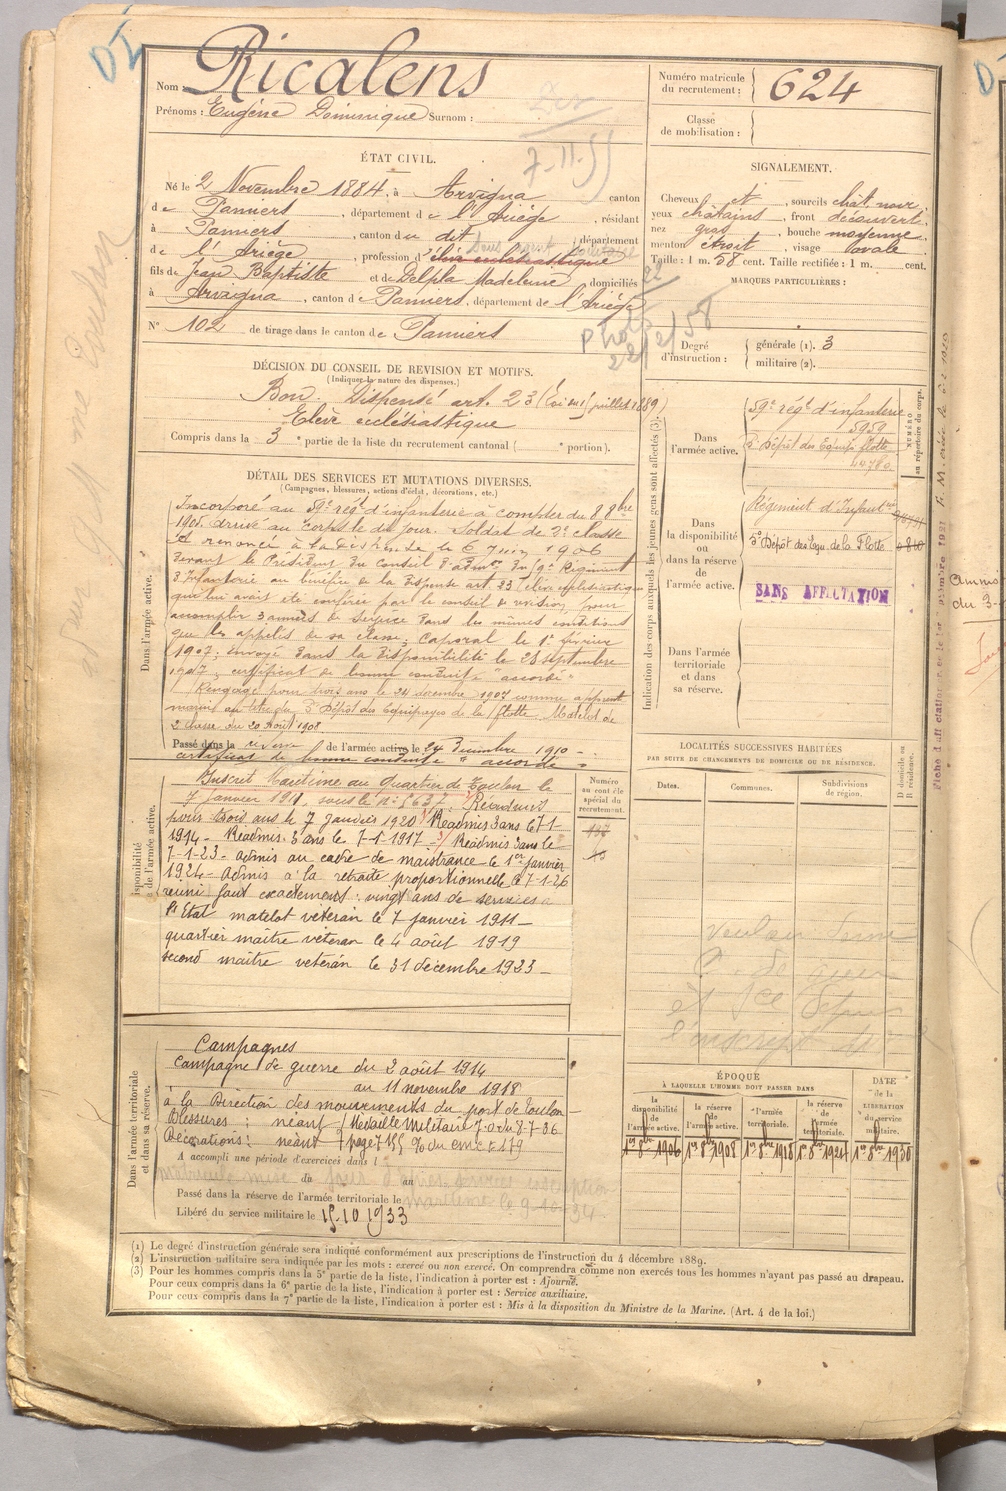 DI
Nom : Ricalens
Prénoms : Eugène Dominique Surnom :
Numéro matricule du recrutement : 624
Classe de mobilisation :
7-11-55
ÉTAT CIVIL.
Né le 2 Novembre 1884, à Arvigna, canton
de Pamiers, département de l'Ariège, résidant
à Pamiers, canton du dit, département
de l'Ariège, profession d'élève ecclésiastique
fils de Jean Baptiste et de Delpla Madeleine domiciliés
à Arvigna, canton de Pamiers, département de l'Ariège
N° 102 de tirage dans le canton de Pamiers
SIGNALEMENT.
Cheveux et, sourcils chât. noir,
yeux châtains, front découvert,
nez gros, bouche moyenne,
menton étroit, visage ovale.
Taille : 1 m. 58 cent. Taille rectifiée : 1 m. cent.
MARQUES PARTICULIÈRES :
Degré d'instruction : générale (1). 3
militaire (2).
DÉCISION DU CONSEIL DE REVISION ET MOTIFS.
(Indiquer la nature des dispenses.)
Bon. Dispensé art. 23 (Loi du juillet 1889)
Elève ecclésiastique
Compris dans la 3e partie de la liste du recrutement cantonal ( e portion).
DÉTAIL DES SERVICES ET MUTATIONS DIVERSES.
(Campagnes, blessures, actions d'éclat, décorations, etc.)
Dans l'armée active.
Incorporé au 59e régt d'infanterie à compter du 8 8bre
1905. arrivé au corps le dit jour. Soldat de 2e classe
a renoncé à la dispense le 6 Juin 1906
devant le Président du Conseil d'admon du 59e Régiment
d'Infanterie au bénéfice de la dispense art. 23 élève ecclésiastique
que lui avait été conférée par le conseil de révision, pour
accomplir 3 années de service dans les mêmes conditions
que les appelés de sa classe; Caporal le 1er février
1907; envoyé dans la disponibilité le 28 septembre
1907; certificat de bonne conduite "accordé"
Rengagé pour trois ans le 24 décembre 1907 comme apprenti
marin au titre du 5e Dépôt des Equipages de la flotte. Matelot de
2e classe du 20 Août 1908
Passé dans la réserve de l'armée active le 24 Décembre 1910 -
certificat de bonne conduite "accordé"
Inscrit Maritime au Quartier de Toulon le
7 janvier 1911, sous le n° 5637. Réadmis
pour trois ans le 7 janvier 1920 Réadmis 3 ans le 7-1-
1914 - Réadmis 3 ans le 7-1-1917 - 3/ Réadmis 3 ans le
7-1-23 - admis au cadre de maistrance le 1er janvier
1924 - Admis à la retraite proportionnelle le 7-1-26
réuni fait exactement : vingt ans de services à
l'Etat matelot vétéran le 7 janvier 1911 -
quartier maître vétéran le 4 août 1919
second maître vétéran le 31 décembre 1923 -
Numéro au contrôle spécial du recrutement.
Dans l'armée territoriale et dans sa réserve.
Campagnes
Campagne de guerre du 2 août 1914
au 11 novembre 1918
à la Direction des mouvements du port de Toulon -
Blessures : néant / Médaille Militaire J.O du 8-7-36
Décorations : néant
A accompli une période d'exercices dans l
du au
Passé dans la réserve de l'armée territoriale le
Libéré du service militaire le 15.10 1933
Indication des corps auxquels les jeunes gens sont affectés (3).
Dans l'armée active.
59e régt d'infanterie
5959
5e Dépôt des Equip. flotte
NUMÉRO au répertoire du corps.
Dans la disponibilité ou dans la réserve de l'armée active.
Régiment d'Infant
5e Dépôt des Equ. de la Flotte
SANS AFFECTATION
Dans l'armée territoriale et dans sa réserve.
LOCALITÉS SUCCESSIVES HABITÉES
PAR SUITE DE CHANGEMENTS DE DOMICILE OU DE RÉSIDENCE.
Dates. Communes. Subdivisions de région. D domicile ou R résidence.
ÉPOQUE
À LAQUELLE L'HOMME DOIT PASSER DANS
la disponibilité de l'armée active. la réserve de l'armée active. l'armée territoriale. la réserve de l'armée territoriale. DATE de la LIBÉRATION du service militaire.
1er 8bre 1906 1er 8bre 1908 1er 8bre 1918 1er 8bre 1924 1er 8bre 1930
(1) Le degré d'instruction générale sera indiqué conformément aux prescriptions de l'instruction du 4 décembre 1889.
(2) L'instruction militaire sera indiquée par les mots : exercé ou non exercé. On comprendra comme non exercés tous les hommes n'ayant pas passé au drapeau.
(3) Pour les hommes compris dans la 5e partie de la liste, l'indication à porter est : Ajourné.
Pour ceux compris dans la 6e partie de la liste, l'indication à porter est : Service auxiliaire.
Pour ceux compris dans la 7e partie de la liste, l'indication à porter est : Mis à la disposition du Ministre de la Marine. (Art. 4 de la loi.)